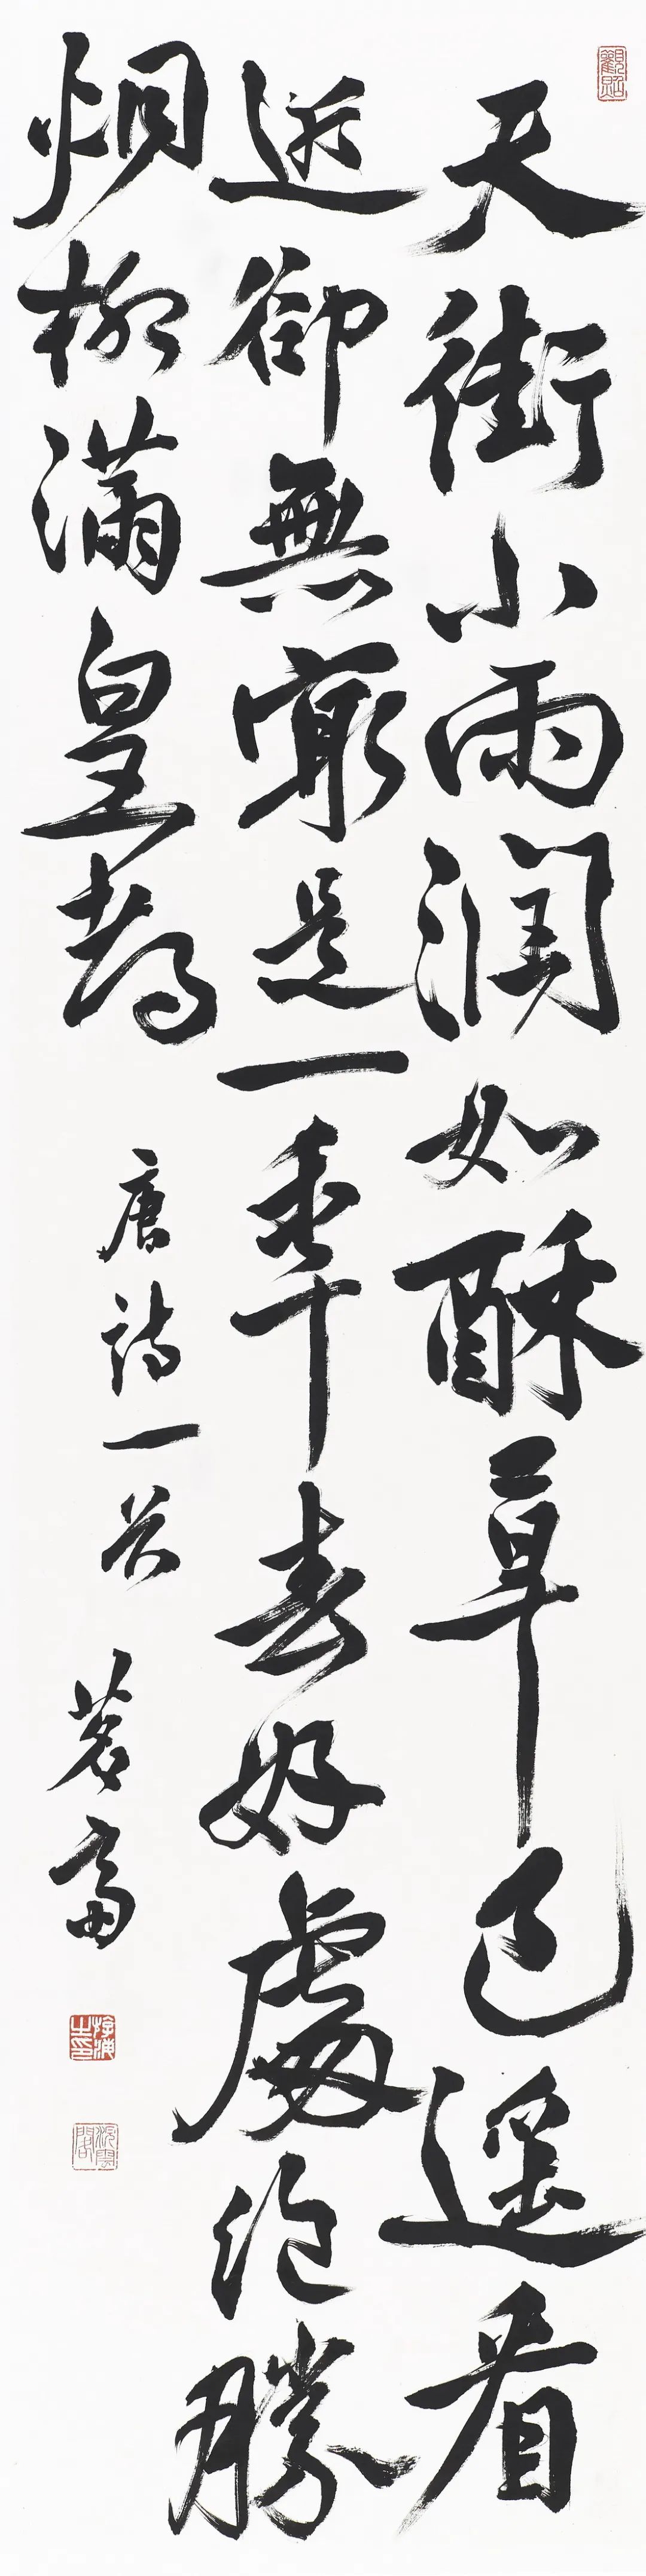 天街小雨潤如酥草色遙看
近卻無最是一秊春好處絕勝
烟柳滿皇都
唐詩一首